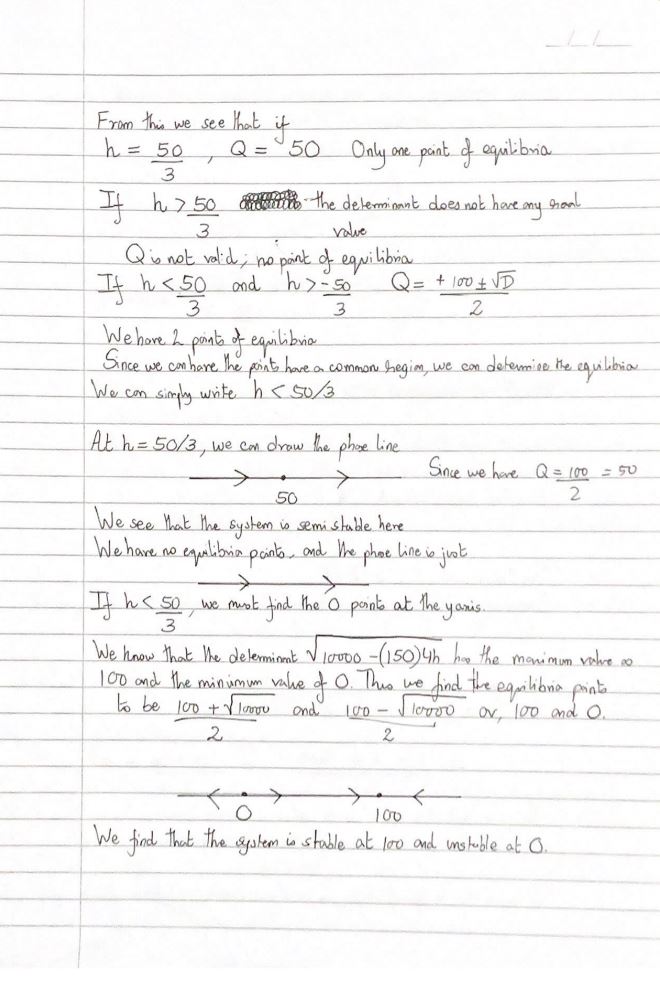 From this we see that if
h = 50/3 , Q = 50 Only one point of equilibria
If h > 50/3 the determinant does not have any real
value
Q is not valid; no point of equilibria
If h < 50/3 and h > -50/3 Q = + 100 ± √D / 2
We have 2 points of equilibria
Since we can have the points have a common region, we can determine the equilibria
We can simply write h < 50/3
At h = 50/3, we can draw the phase line
Since we have Q = 100/2 = 50
50
We see that the system is semi stable here
We have no equilibria points, and the phase line is just
If h < 50/3, we must find the 0 points at the yaxis.
We know that the determinant √10000 - (150)4h has the maximum value as
100 and the minimum value of 0. Thus we find the equilibria points
to be 100 + √10000 / 2 and 100 - √10000 / 2 or, 100 and 0.
0 100
We find that the system is stable at 100 and unstable at 0.